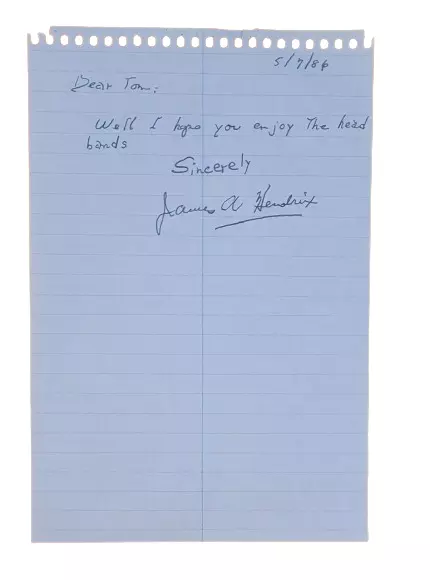 5/7/86
Dear Tom:
Well I hope you enjoy The head
bands
Sincerely
James A Hendrix